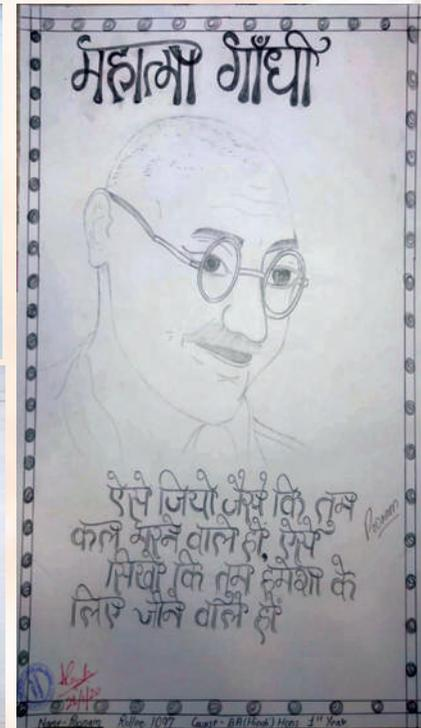 महात्मा गाँधी
ऐसे जियो जैसे कि तुम
कल मरने वाले हो, ऐसे
सिखो कि तुम हमेशा के
लिए जीने वाले हो
Poonam
24/1/20
Name - Poonam Rollno 1097 Course - BA(Hindi) Hons 1st Year